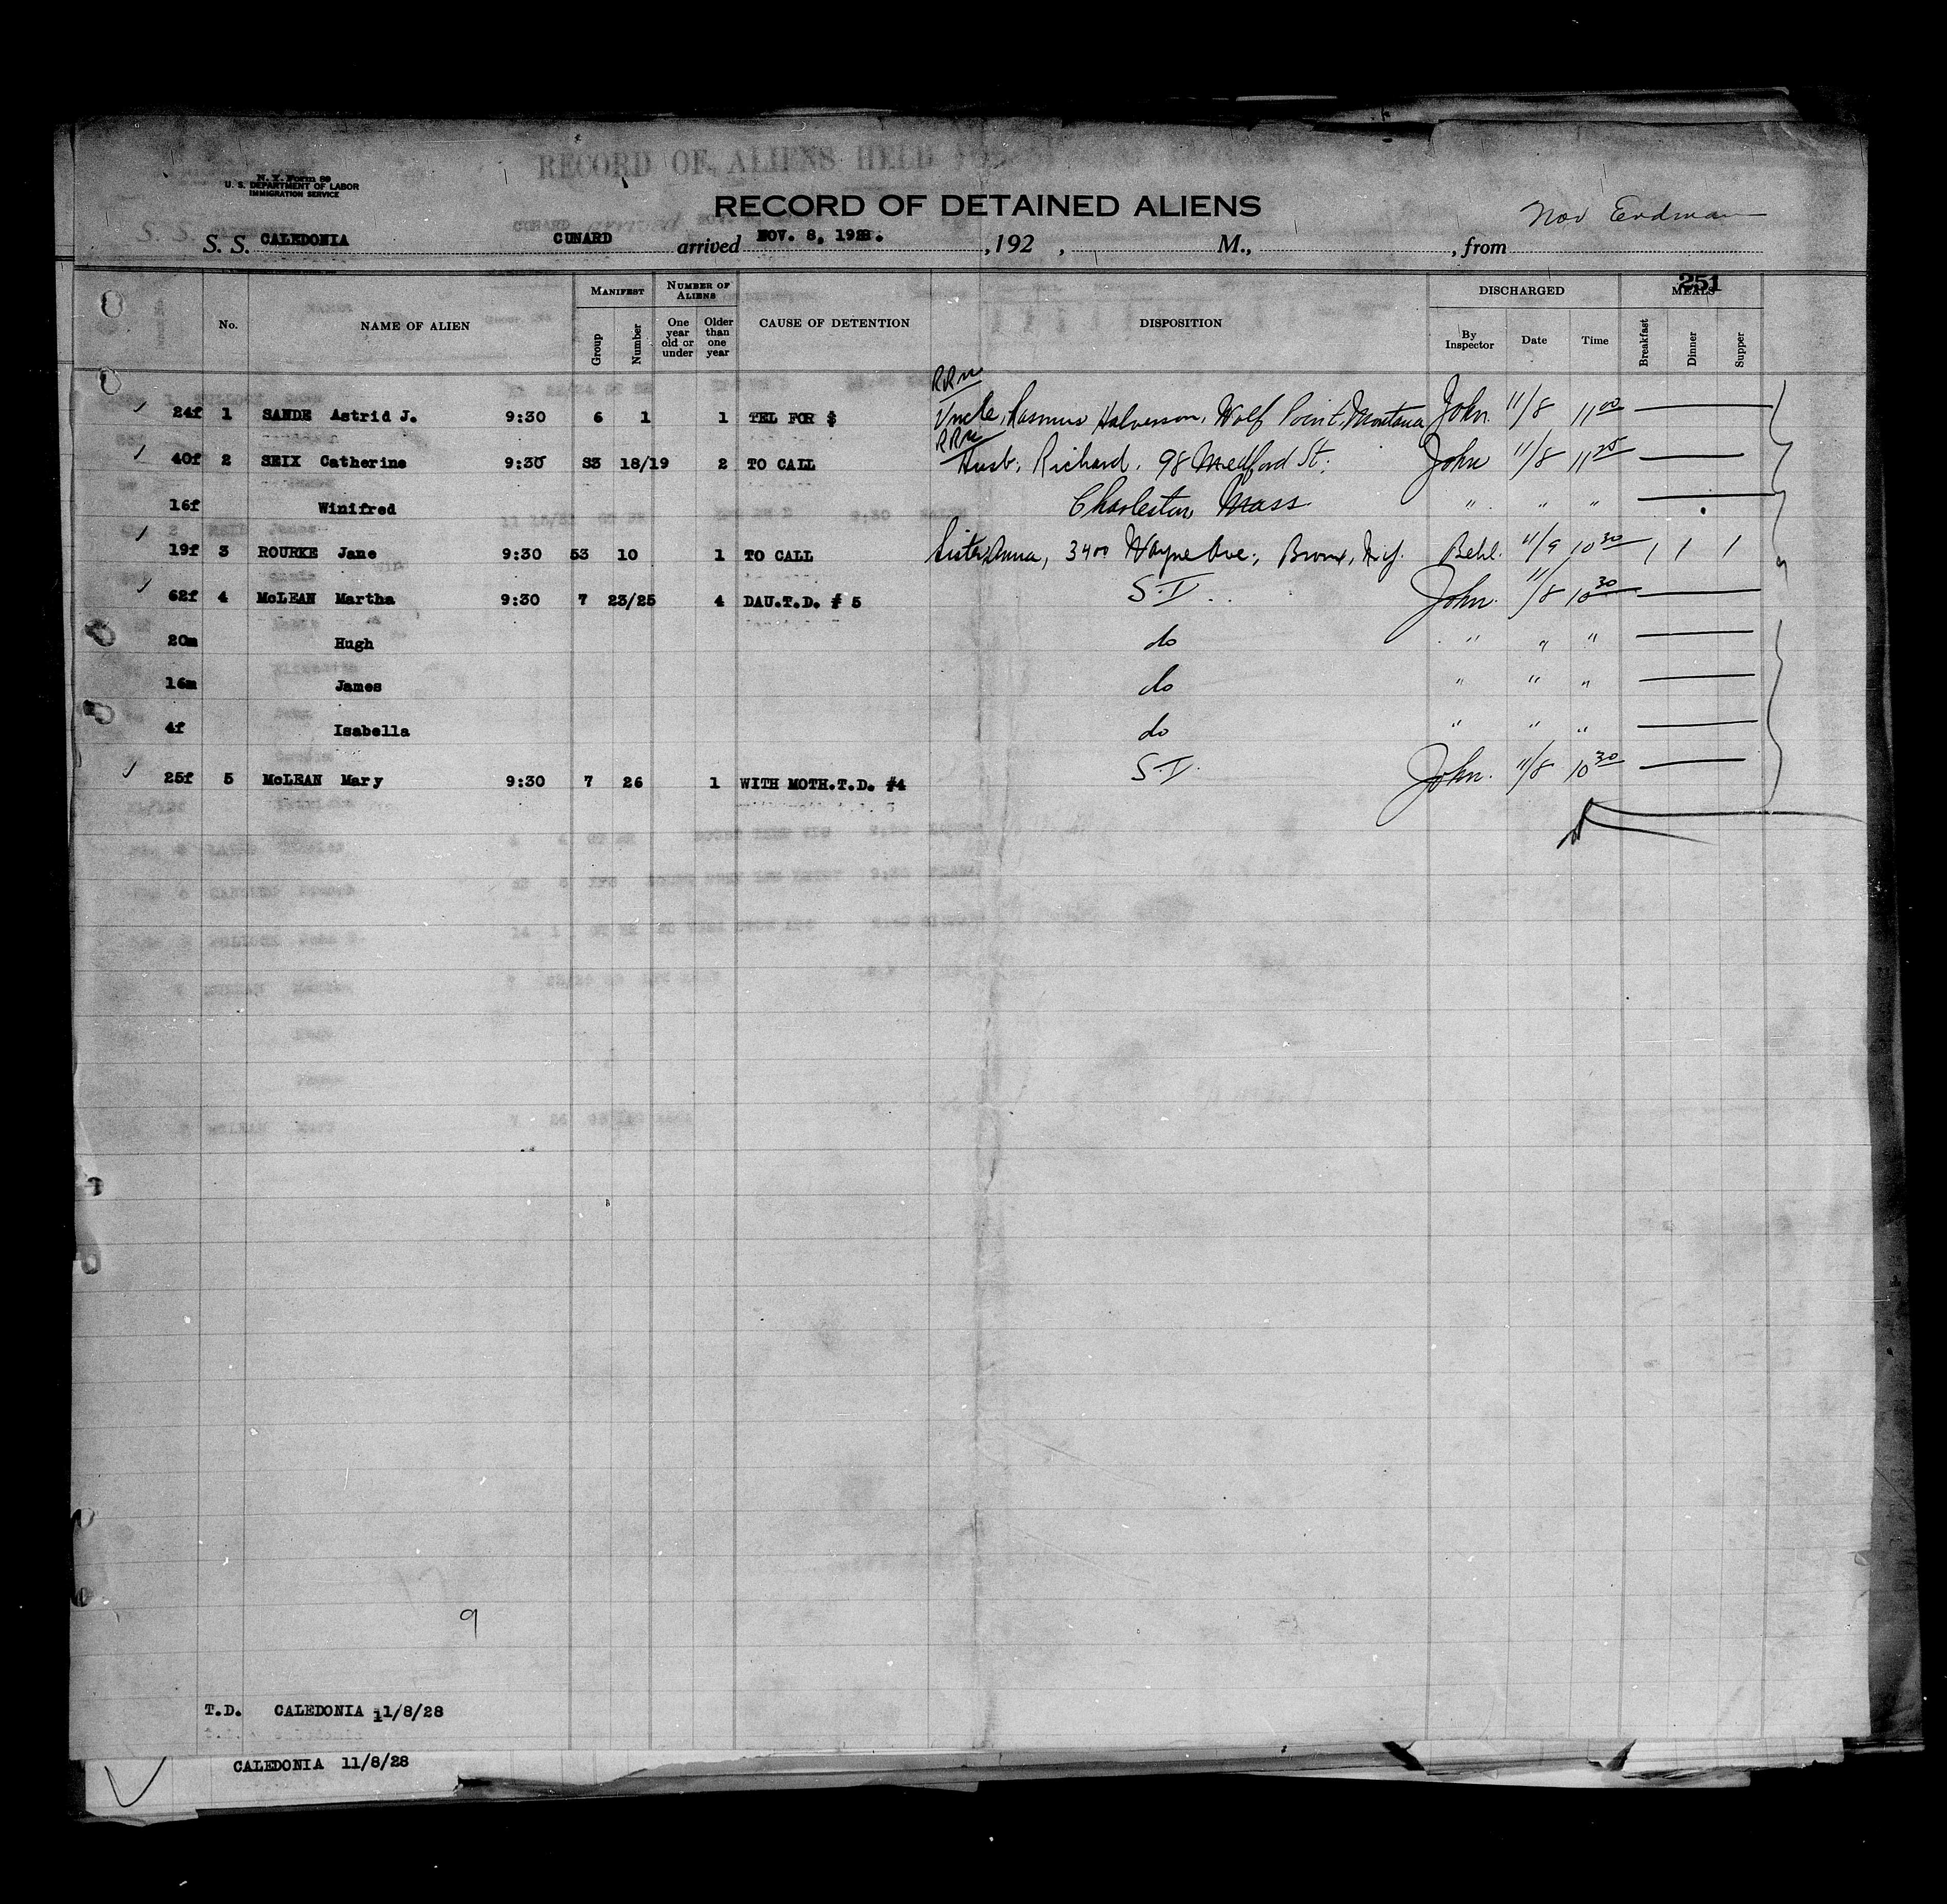 RECORD OF ALIENS HELD
N. Y. Form 89
U. S. DEPARTMENT OF LABOR
IMMIGRATION SERVICE
RECORD OF DETAINED ALIENS
Nov Erdman
S. S. CALEDONIA CUNARD arrived NOV. 8, 1928. , 192 , M., , from
251
No. NAME OF ALIEN MANIFEST Group Number NUMBER OF ALIENS One year old or under Older than one year CAUSE OF DETENTION DISPOSITION DISCHARGED By Inspector Date Time MEALS Breakfast Dinner Supper
RRu
24f 1 SANDE Astrid J. 9:30 6 1 1 TEL FOR $ Uncle, Rasmus Halverson, Wolf Point, Montana John. 11/8 11 00
RRu
40f 2 SEIX Catherine 9:30 S3 18/19 2 TO CALL Husb, Richard, 98 Medford St; John 11/8 11 25
16f Winifred Charleston Mass. " " "
19f 3 ROURKE Jane 9:30 53 10 1 TO CALL Sister Anna, 3400 Wayne Ave; Bronx, N.Y. Behl. 11/9 10 30 1 1 1
62f 4 McLEAN Martha 9:30 7 23/25 4 DAU.T.D. # 5 S.I. John. 11/8 10 30
20m Hugh do " " "
16m James do " " "
4f Isabella do " " "
25f 5 McLEAN Mary 9:30 7 26 1 WITH MOTH.T.D. #4 S.I. John. 11/8 10 30
9
T.D. CALEDONIA 11/8/28
CALEDONIA 11/8/28